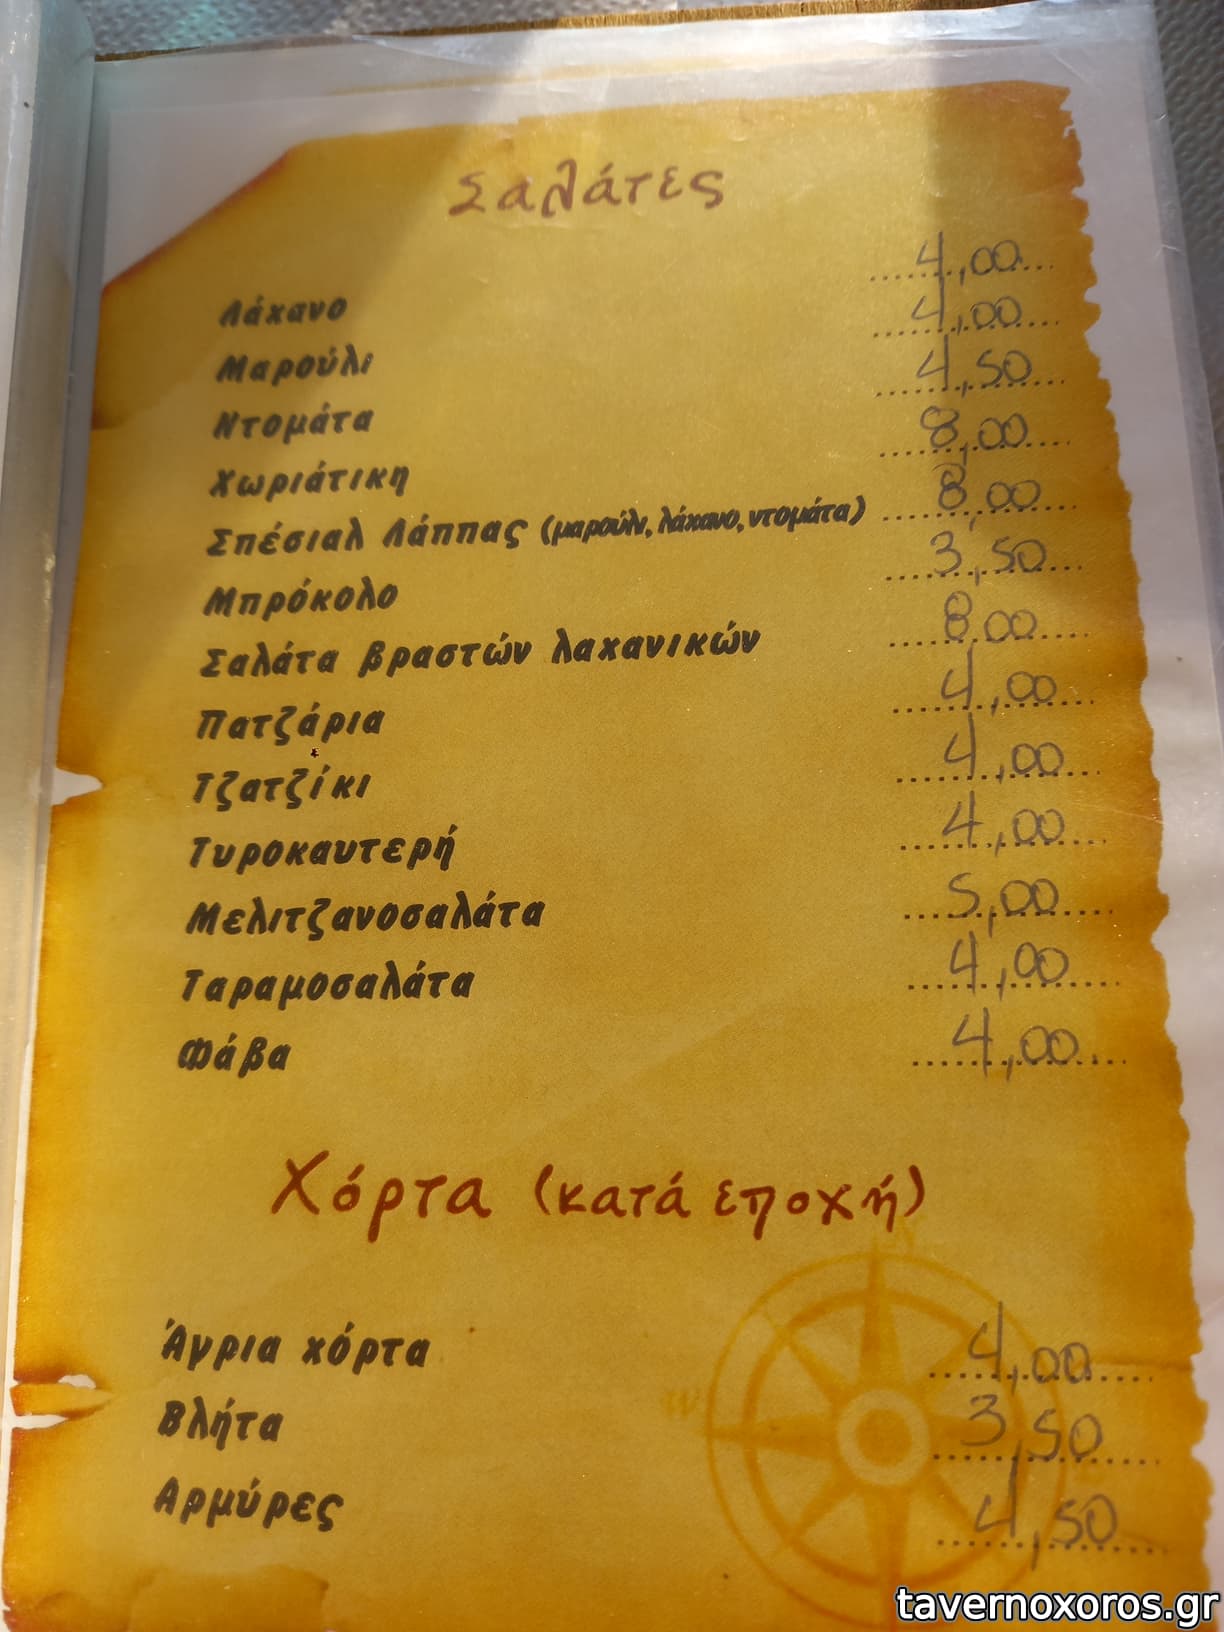 Σαλάτες
Λάχανο ........ 4,00
Μαρούλι ........ 4,00
Ντομάτα ........ 4,50
Χωριάτικη ........ 8,00
Σπέσιαλ Λάππας (μαρούλι, λάχανο, ντομάτα) ........ 8,00
Μπρόκολο ........ 3,50
Σαλάτα βραστών λαχανικών ........ 8,00
Πατζάρια ........ 4,00
Τζατζίκι ........ 4,00
Τυροκαυτερή ........ 4,00
Μελιτζανοσαλάτα ........ 5,00
Ταραμοσαλάτα ........ 4,00
Φάβα ........ 4,00
Χόρτα (κατά εποχή)
Άγρια χόρτα ........ 4,00
Βλήτα ........ 3,50
Αρμύρες ........ 4,50
tavernoxoros.gr